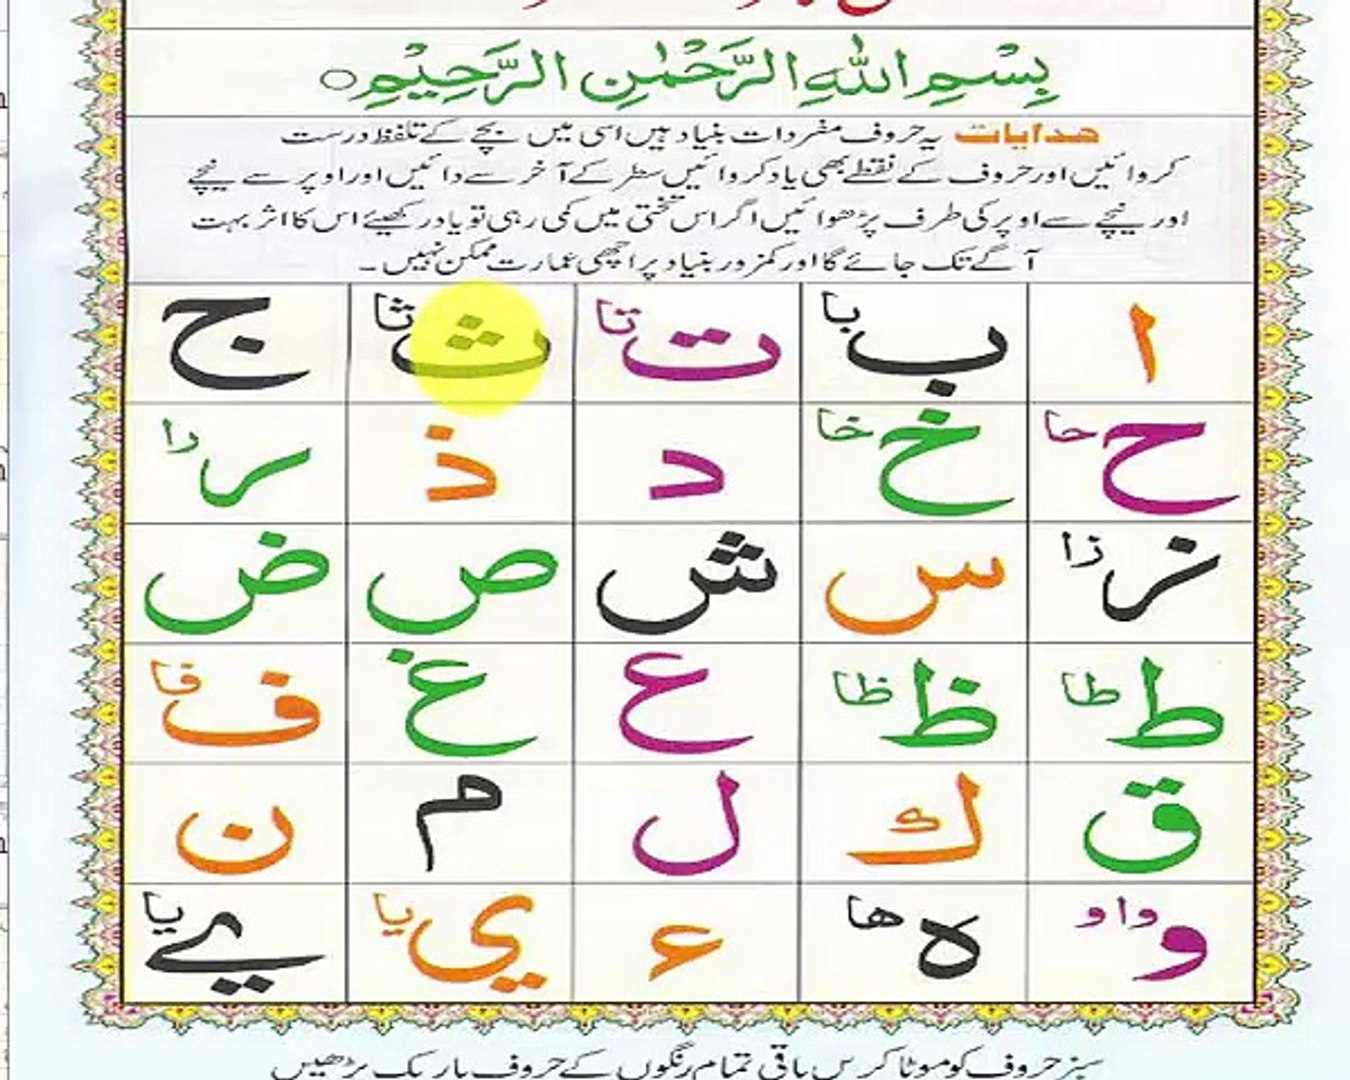 بِسْمِ اللهِ الرَّحْمٰنِ الرَّحِيْمِ ○
ھدایات یہ حروف مفردات بنیاد ہیں اسی میں بچے کے تلفظ درست
کروائیں اور حروف کے نقطے بھی یاد کروائیں سطر کے آخر سے دائیں اور اوپر سے نیچے
اور نیچے سے اوپر کی طرف پڑھوائیں اگر اس تختی میں کمی رہی تو یاد رکھیئے اس کا اثر بہت
آگے تک جائے گا اور کمزور بنیاد پر اچھی عمارت ممکن نہیں ۔
ا ب با ت تا ث ثا ج
ح حا خ خا د ذ ر را
ز زا س ش ص ض
ط طا ظ ظا ع غ ف فا
ق ك ل م ن
و واو ه ھا ء ي یا ے یا
سبز حروف کو موٹا کریں باقی تمام رنگوں کے حروف باریک پڑھیں